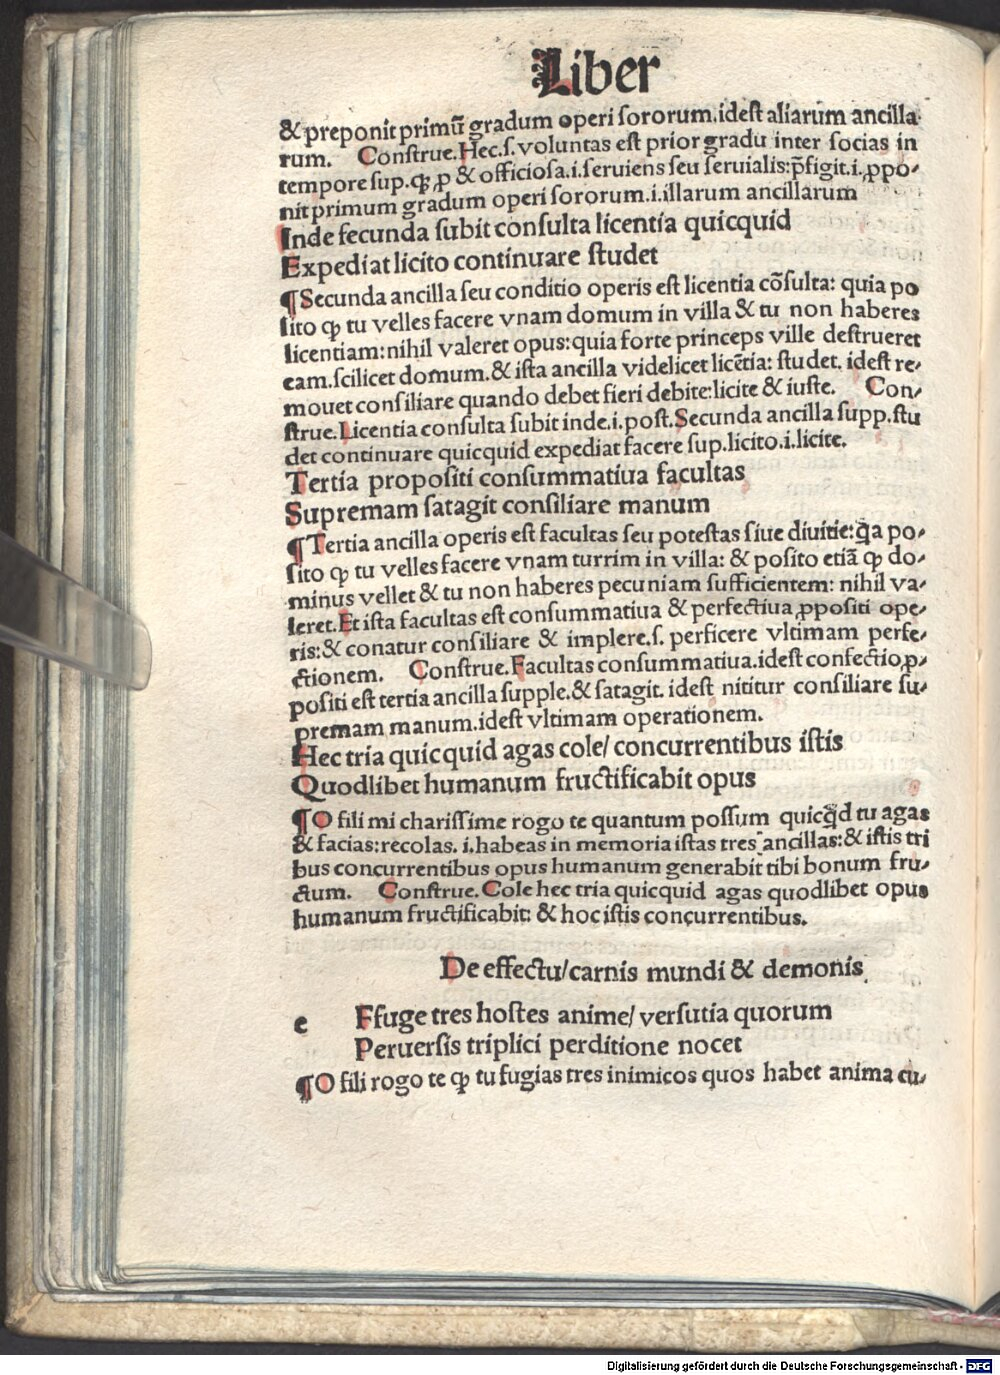 Liber
& preponit primū gradum operi ſororum.ideſt aliarum ancilla⸗
rum. Conſtrue.Hec.ſ.voluntas eſt prior gradu inter ſocias in
tempore ſup.ꝙ, ꝓ & officioſa.i.ſeruiens ſeu ſeruialis:p̄figit.i.ꝓpo⸗
nit primum gradum operi ſororum.i.illarum ancillarum
Inde fecunda ſubit conſulta licentia quicquid
Expediat licito continuare ſtudet
¶Secunda ancilla ſeu conditio operis eſt licentia cōſulta: quia po
ſito ꝙ tu velles facere vnam domum in villa & tu non haberes
licentiam:nihil valeret opus:quia forte princeps ville deſtrueret
eam.ſcilicet domum.& iſta ancilla videlicet licētia: ſtudet. ideſt re⸗
mouet conſiliare quando debet fieri debite:licite & iuſte. Con⸗
ſtrue.Licentia conſulta ſubit inde.i.poſt.Secunda ancilla ſupp.ſtu
det continuare quicquid expediat facere ſup.licito.i.licite.
Tertia propoſiti conſummatiua facultas
Supremam ſatagit conſiliare manum
¶Tertia ancilla operis eſt facultas ſeu poteſtas ſiue diuitie:q̄a po⸗
ſito ꝙ tu velles facere vnam turrim in villa: & poſito etiā ꝙ do⸗
minus vellet & tu non haberes pecuniam ſufficientem: nihil va⸗
leret.Et iſta facultas eſt conſummatiua & perfectiua ꝓpoſiti ope⸗
ris:& conatur conſiliare & implere.ſ. perficere vltimam perfe⸗
ctionem. Conſtrue.Facultas conſummatiua.ideſt confectio,ꝓ⸗
poſiti eſt tertia ancilla ſupple.& ſatagit. ideſt nititur conſiliare ſu⸗
premam manum.ideſt vltimam operationem.
Hec tria quicquid agas cole/ concurrentibus iſtis
Quodlibet humanum fructificabit opus
¶O fili mi chariſſime rogo te quantum poſſum quicq̄d tu agas
& facias:recolas. i.habeas in memoria iſtas tres ancillas:& iſtis tri
bus concurrentibus opus humanum generabit tibi bonum fru⸗
ctum. Conſtrue.Cole hec tria quicquid agas quodlibet opus
humanum fructificabit: & hoc iſtis concurrentibus.
De effectu/carnis mundi & demonis
e Ffuge tres hoſtes anime/ verſutia quorum
Peruerſis triplici perditione nocet
¶O fili rogo te ꝙ tu fugias tres inimicos quos habet anima cu⸗
Digitalisierung gefördert durch die Deutsche Forschungsgemeinschaft - DFG